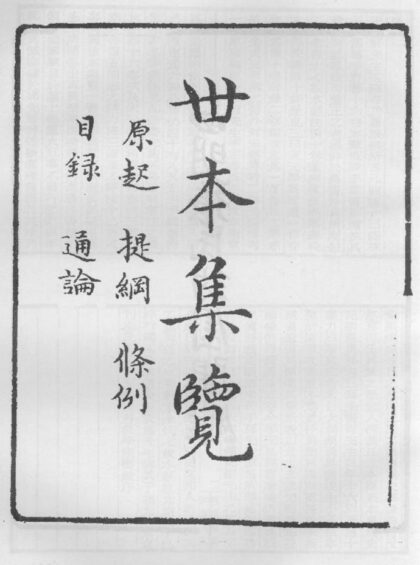 丗本集覽
原起 提綱 條例
目録 通論